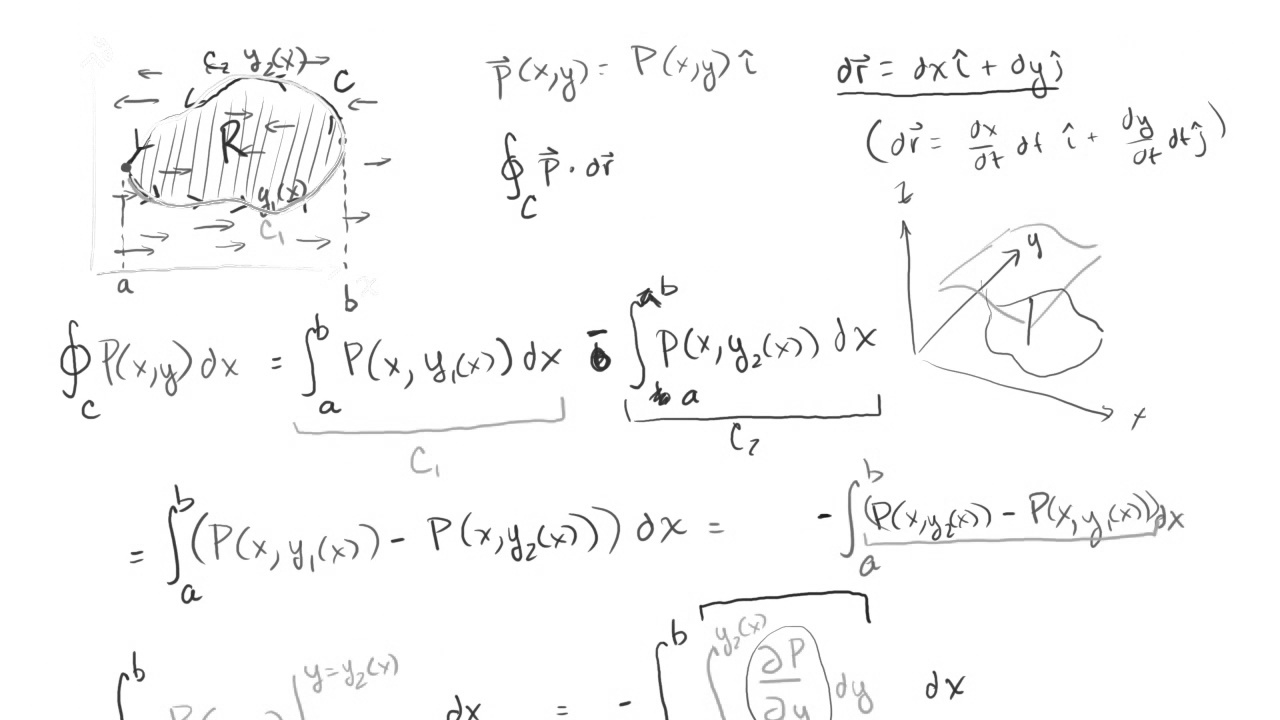 C₂ y₂(x)
C
R
y₁(x)
C₁
a
b
x
P⃗(x,y) = P(x,y) î
∮_C P⃗ · dr⃗
dr⃗ = dx î + dy ĵ
(dr⃗ = dx/dt dt î + dy/dt dt ĵ)
z
y
x
∮_C P(x,y) dx = ∫_a^b P(x, y₁(x)) dx - ∫_a^b P(x, y₂(x)) dx
C₁ C₂
= ∫_a^b (P(x, y₁(x)) - P(x, y₂(x))) dx = - ∫_a^b (P(x, y₂(x)) - P(x, y₁(x))) dx
∫^b P( |^{y=y₂(x)} dx = - ∫^b ∫^{y₂(x)} ∂P/∂y dy dx